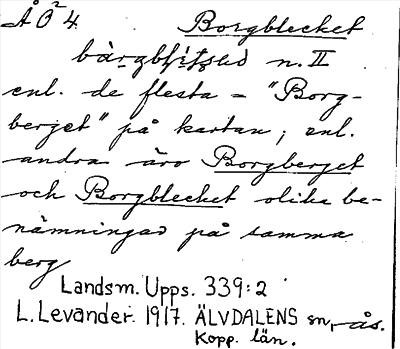 ÅÖ² 4 Borgblecket
n. II
enl. de flesta = "Borg-
berget" på kartan; enl.
andra äro Borgberget
och Borgblecket olika be-
nämningar på samma
berg
Landsm. Upps. 339:2
L. Levander. 1917. ÄLVDALENS sn, ås.
Kopp. län.